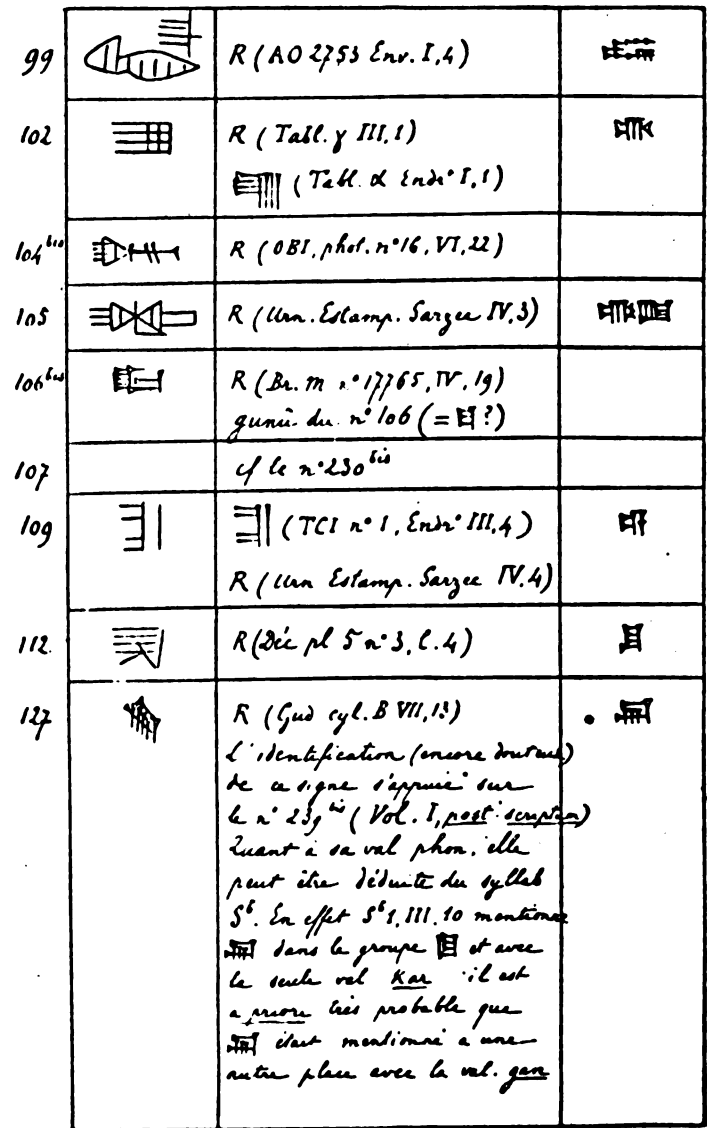 99 R (AO 2753 Env. I,4)
102 R (Tabl. γ III,1)
(Tabl. α Endrt I,1)
104 bis R (OBI, phot. n° 16, VI, 22)
105 R (Urn. Estamp. Sarzec IV,3)
106 bis R (Br. m n° 17765, IV, 19)
gunû du n° 106 (= ?)
107 cf le n° 230 bis
109 (TCI n° 1, Endrt III,4)
R (Urn Estamp. Sarzec IV.4)
112. R (Déc pl 5 n° 3, l. 4)
127 R (Gud cyl. B VII, 13)
L'identification (encore douteuse)
de ce signe s'appuie sur
le n° 239 bis (Vol. I, post scriptum)
Quant à sa val phon. elle
peut être déduite du syllab
Sb. En effet Sb 1, III. 10 mentionne
dans le groupe et avec
la seule val Kar il est
a priori très probable que
était mentionné a une
autre place avec la val. gan